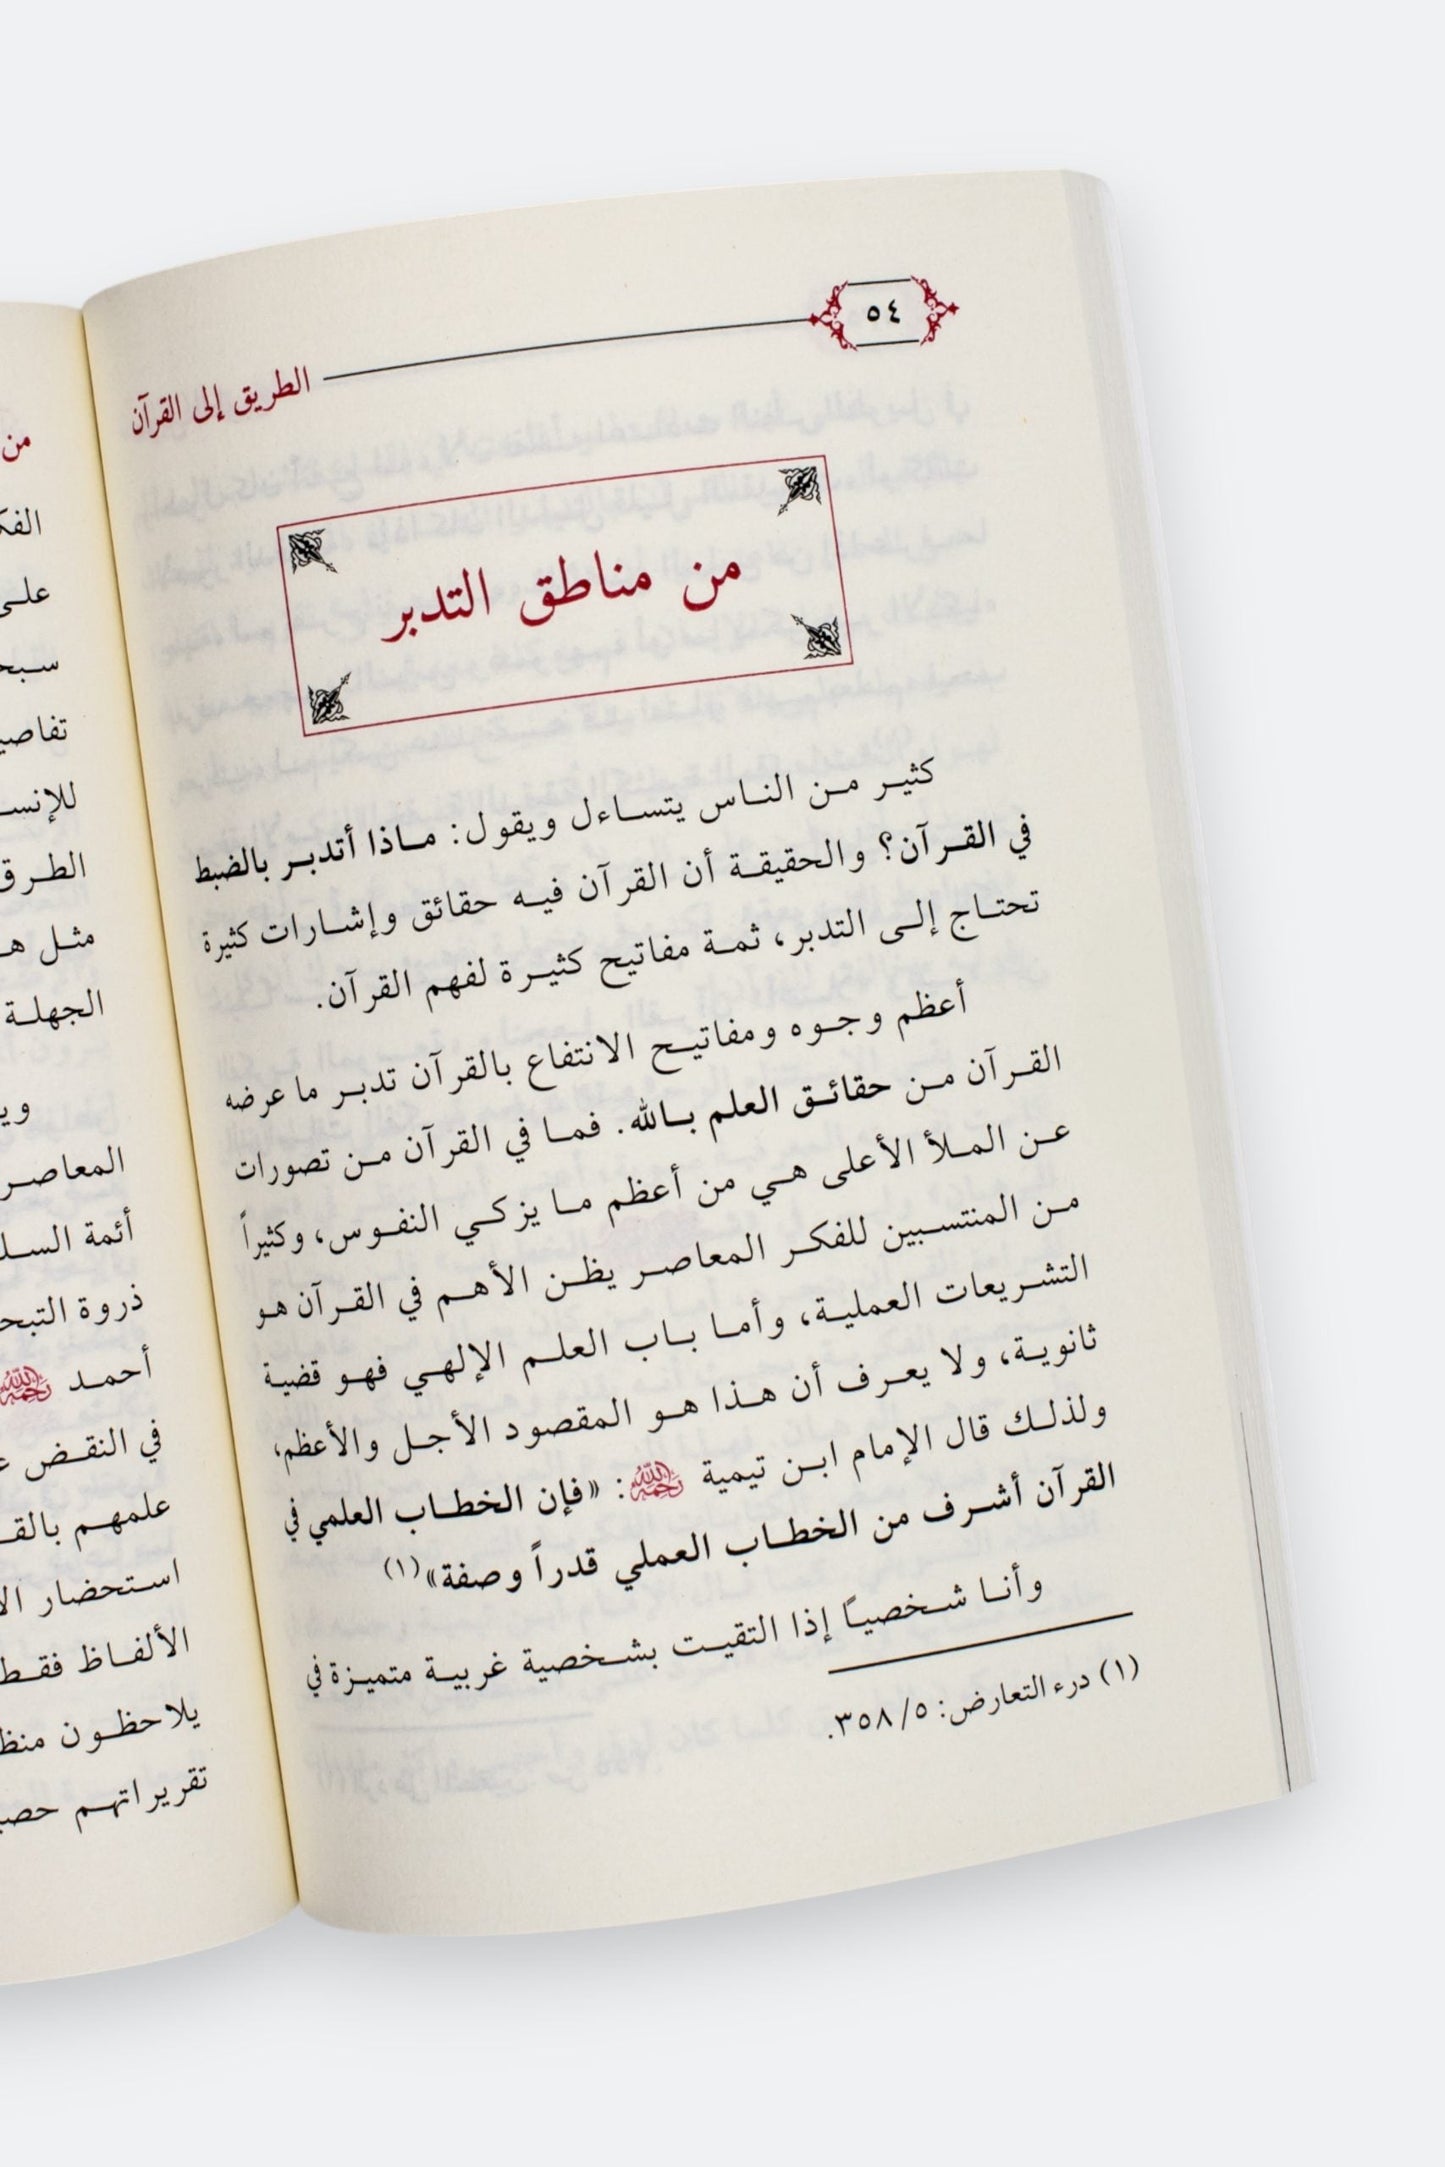 ٥٤
الطريق إلى القرآن
من مناطق التدبر
كثير من الناس يتساءل ويقول: ماذا أتدبر بالضبط
في القرآن؟ والحقيقة أن القرآن فيه حقائق وإشارات كثيرة
تحتاج إلى التدبر، ثمة مفاتيح كثيرة لفهم القرآن.
أعظم وجوه ومفاتيح الانتفاع بالقرآن تدبر ما عرضه
القرآن من حقائق العلم بالله. فما في القرآن من تصورات
عن الملأ الأعلى هي من أعظم ما يزكي النفوس، وكثيراً
من المنتسبين للفكر المعاصر يظن الأهم في القرآن هو
التشريعات العملية، وأما باب العلم الإلهي فهو قضية
ثانوية، ولا يعرف أن هذا هو المقصود الأجل والأعظم،
ولذلك قال الإمام ابن تيمية رحمه الله: «فإن الخطاب العلمي في
القرآن أشرف من الخطاب العملي قدراً وصفة»(١)
وأنا شخصياً إذا التقيت بشخصية غربية متميزة في
(١) درء التعارض: ٣٥٨/٥.
من
على
للإنسـ
الطرق
مثل
الجهلة
المعاصر
أئمة
ذروة
أحمد رحمه الله
في النقض
علمهم
استحضار
الألفاظ فقط
يلاحظون
تقريراتهم